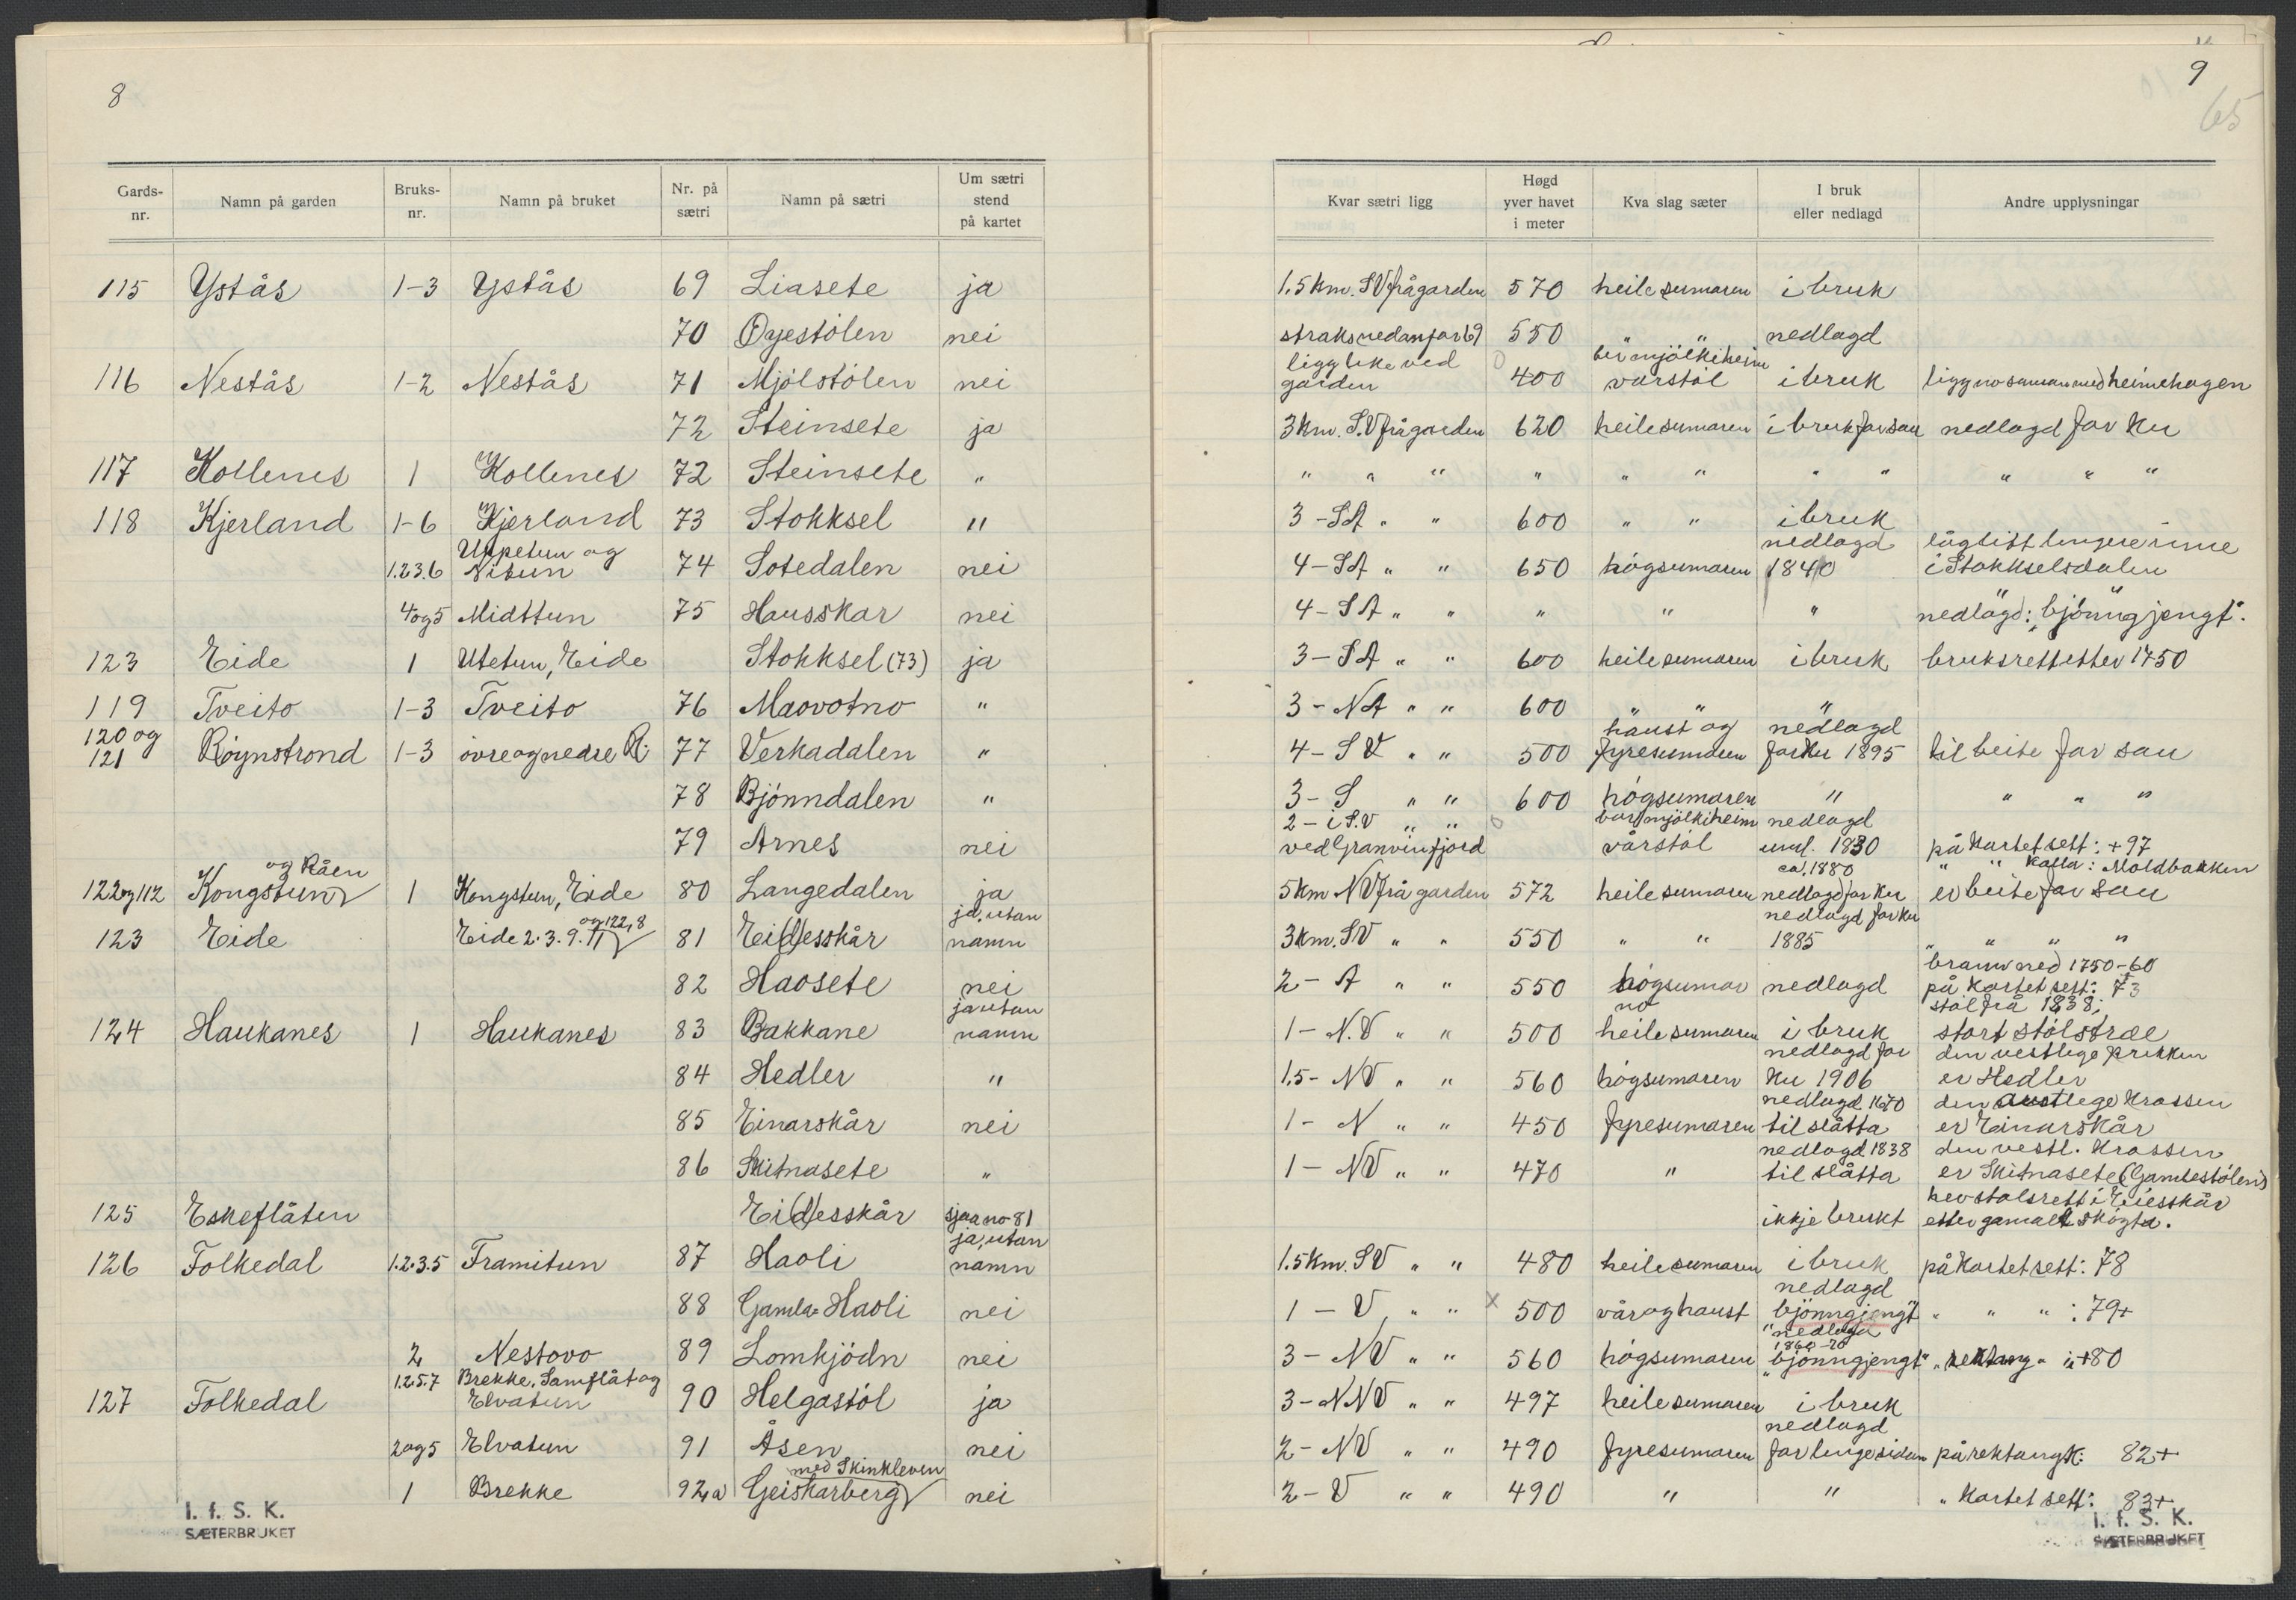 8
Gards-nr. Namn på garden Bruks-nr. Namn på bruket Nr. på sætri Namn på sætri Um sætri stend på kartet
115 Ystås 1-3 Ystås 69 Liasete ja
70 Øyestølen nei
116 Nestås 1-2 Nestås 71 Mjølstølen nei
72 Steinsete ja
117 Kollenes 1 Kollenes 72 Steinsete "
118 Kjerland 1-6 Kjerland 73 Stokksel "
1.2.3.6 Uppetun og Nitun 74 Sotedalen nei
4og5 Midttun 75 Hausskar nei
123 Eide 1 Utetun, Eide Stokksel (73) ja
119 Tveito 1-3 Tveito 76 Maovotno "
120 og 121 Røynstrond 1-3 øvre og nedre R. 77 Verkadalen "
78 Bjønndalen "
79 Arnes nei
122og112 Kongstun og Råen 1 Kongstun, Eide 80 Langedalen ja
123 Eide Eide 2.3.9.11 og 122,8 81 Ei(d)esskår ja, utan namn
82 Haosete nei
124 Haukanes 1 Haukanes 83 Bakkane ja utan namn
84 Hedler "
85 Einarskår nei
86 Skitnasete "
125 Eskeflåten Ei(d)esskår sjaa no 81
126 Folkedal 1.2.3.5 Framitun 87 Haoli ja, utan namn
88 Gamla-Haoli nei
2 Nestovo 89 Lomkjödn nei
127 Folkedal 1.2.5.7 Brekke, Samflåt og Elvatun 90 Helgastøl ja
2og5 Elvatun 91 Åsen nei
1 Brekke 92,a Geiskarberg med Skinkleven nei
I. f. S. K.
SÆTERBRUKET
9
65
Kvar sætri ligg Høgd yver havet i meter Kva slag sæter I bruk eller nedlagd Andre upplysningar
1.5 km. SV frå garden 570 heile sumaren i bruk
straks nedanfor 69 550 " " nedlagd
ligg like ved garden 400 ber mjölki heim vårstøl i bruk ligg no saman med heimehagen
3 km. S.V frå garden 620 heile sumaren i bruk for sau nedlagd for ku
" " " " " " " " " " "
3 - SA " " 600 " " i bruk
4 - SA " " 650 høgsumaren nedlagd 1840 låg litt lengere inne i Stokkselsdalen
4 - SA " " " " " nedlagd: "bjønngjengt".
3 - SA " " 600 heile sumaren i bruk bruksrett etter 1750
3 - NA " " 600 " " "
4 - SV " " 500 haust og fyresumaren nedlagd for ku 1895 til beite for sau
3 - S " " 600 høgsumaren " " " "
2 - i S.V " " ved Granvinfjord bar mjölki heim vårstøl nedlagd uml. 1830 på kartet sett: +97
5 km NV frå garden 572 heile sumaren ca. 1880 nedlagd for ku " " kalla: Moldbakken er beite for sau
3 km. SV " " 550 " " nedlagd for ku 1885 " " " "
2 - A " " 550 høgsumar nedlagd brann ned 1750-60 på kartet sett: 73
1 - N.V " " 500 no heile sumaren i bruk støl frå 1838; stort stølstræe
1.5 - NV " " 560 høgsumaren nedlagd for ku 1906 den vestlege prikken er Hedler
1 - N " " 450 fyresumaren nedlagd 1670 til slåtta den austlege krossen er Einarskår
1 - NV " " 470 " nedlagd 1838 til slåtta den vestl. krossen er Skitnasete (Gamlestølen)
ikkje brukt hev stølsrett i Eiesskår etter gamalt skøyta.
1.5 km. SV " " 480 heile sumaren i bruk på kartet sett: 78
1 - V " " x 500 vår og haust nedlagd bjønngjengt " " " : 79+
3 - NV " " 560 høgsumaren nedlagd 1860-70 "bjønngjengt" " rektang " : +80
3 - NNV " " 497 heile sumaren i bruk
2 - NV " " 490 fyresumaren nedlagd for lenge sidan på rektangk: 82+
2 - V " " 490 " " " kartet sett: 83+
I. f. S. K.
SÆTERBRUKET